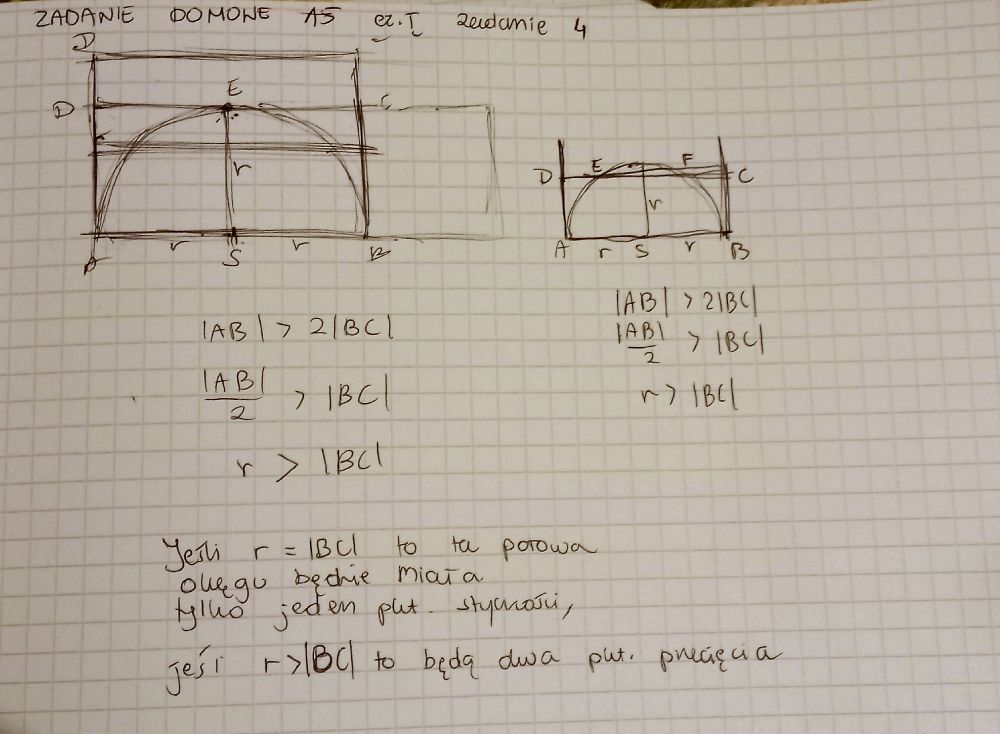 ZADANIE DOMOWE A5 cz. I zadanie 4
D
E
D
C
r
r
r
A
S
B
D
E
F
C
r
A
r
S
r
B
|AB| > 2|BC|
|AB|/2 > |BC|
r > |BC|
|AB| > 2|BC|
|AB|/2 > |BC|
r > |BC|
Jeśli r = |BC| to ta połowa
okręgu będzie miała
tylko jeden pkt. styczności,
jeśi r > |BC| to będą dwa pkt. przecięcia